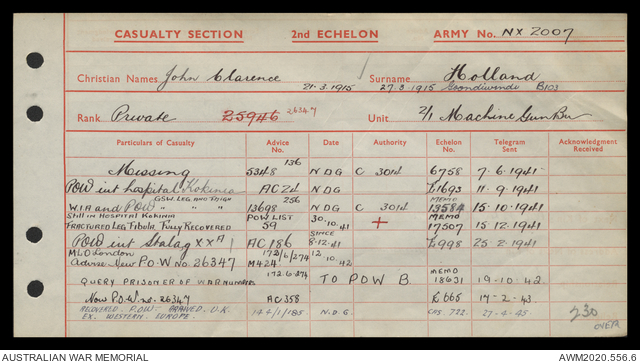 CASUALTY SECTION 2nd ECHELON ARMY No. NX 2007
Christian Names John Clarence 21.3.1915 Surname Holland
27.3.1915 Goondiwindi B103
Rank Private 25946 26347 Unit 2/1 Machine Gun Bn
Particulars of Casualty Advice No. Date Authority Echelon No. Telegram Sent Acknowledgment Received
Missing 5348 136 NDG C 3014 6758 7-6-1941
POW int hospital Kokinea AC2d NDG 1693 11-9-1941
W.I.A and POW GSW. LEG AND THIGH 13698 256 NDG C 3014 MEMO 13584 15-10-1941
Still in Hospital Kokinia POW LIST 30.10.41 MEMO
FRACTURED LEG Fibula Fully Recovered 59 + 17507 15-12-1941
POW int Stalag XX A AC 186 SINCE 8-12-41 998 25-2-1941
MLO London 172/6/274 12
Advise New P.O.W No. 26347 M424 10.42
172.6.274 TO P.O.W B. MEMO
QUERY PRISONER OF WAR NUMBER 18631 19-10-42
Now P.O.W. no. 26347 AC 358 665 17-2-43
RECOVERED P.O.W. ARRIVED U.K. 144/1/185 N.D.G. CAS 722. 27-4-45
EX. WESTERN EUROPE.
230
OVER
AUSTRALIAN WAR MEMORIAL AWM2020.556.6